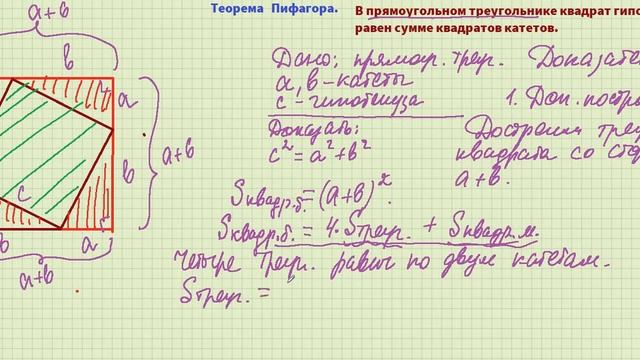 Теорема Пифагора.
В прямоугольном треугольнике квадрат гипо
равен сумме квадратов катетов.
a+в
в
a
в
a+в
c
в
a
a+в
Дано: прямоуг. треуг.
a, в - катеты
c - гипотенуза
Доказать:
c² = a² + в²
Доказате
1. Доп. постр
Достроим треу
квадрата со сто
a+в.
Sквадр.б. = (a+в)²
Sквадр.б. = 4·Sтреуг. + Sквадр.м.
Четыре треуг. равны по двум катетам.
Sтреуг. =